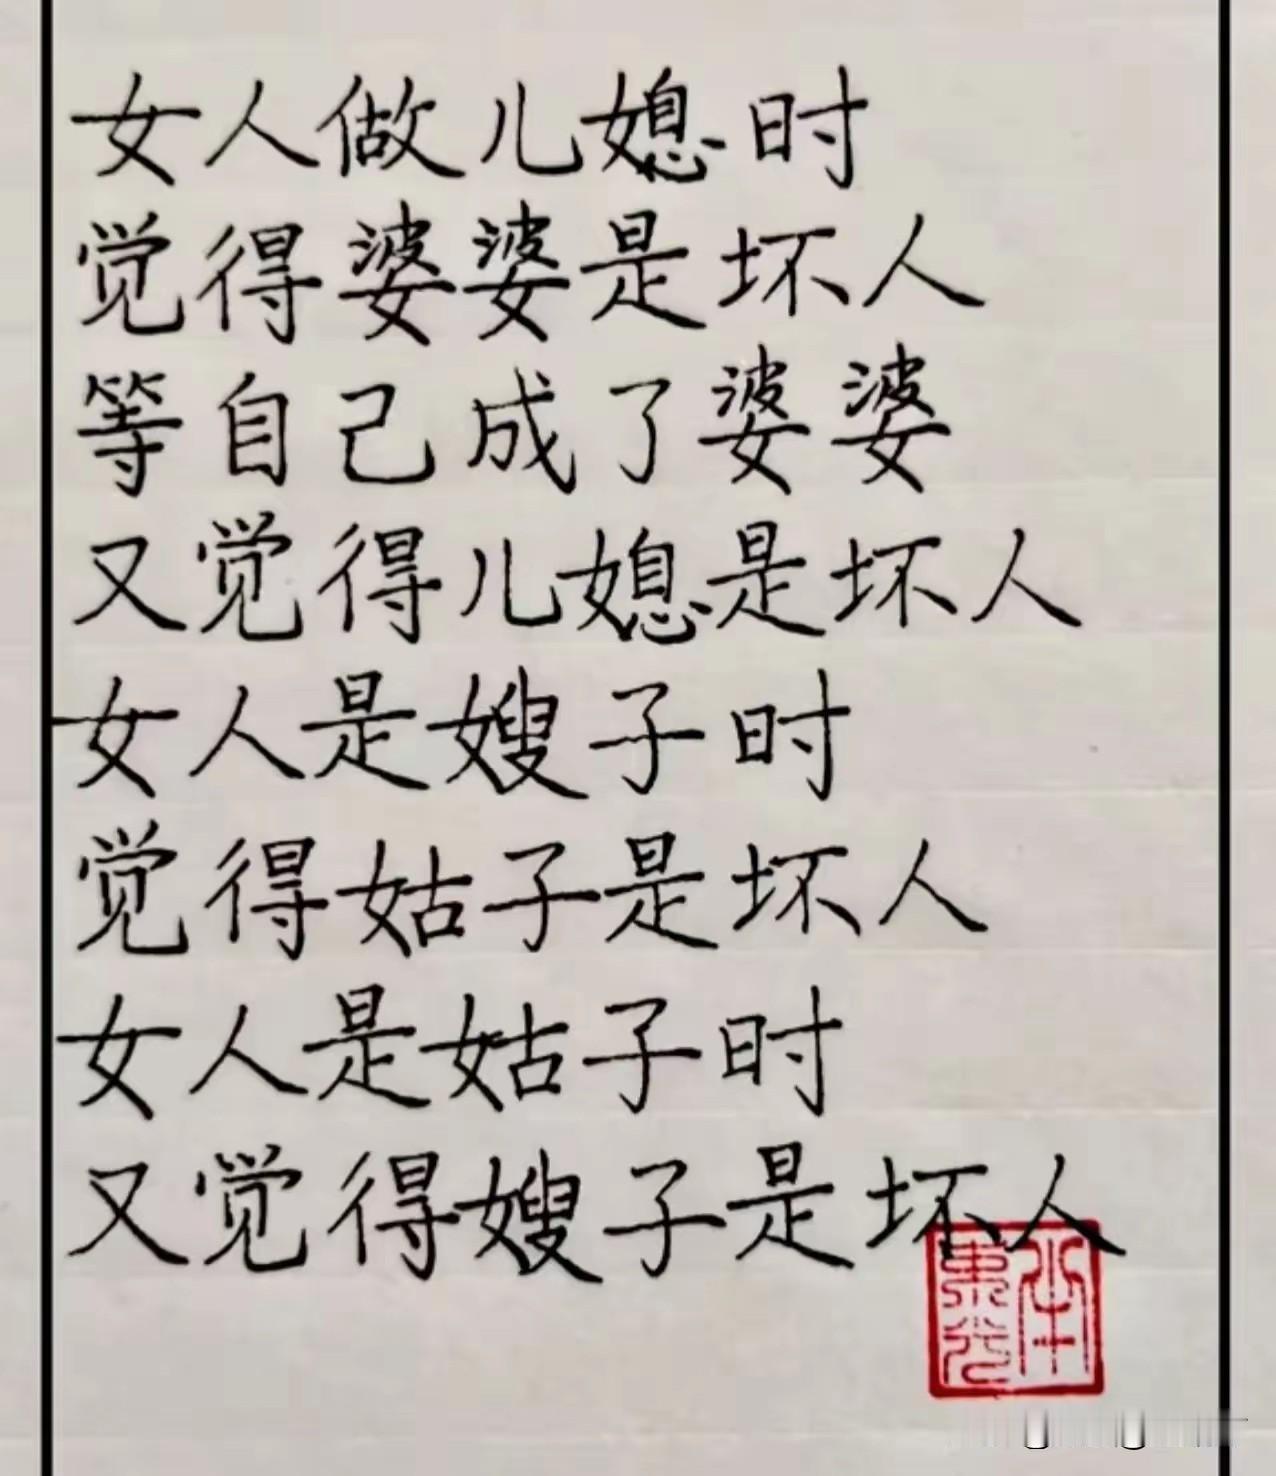 女人做儿媳时
觉得婆婆是坏人
等自己成了婆婆
又觉得儿媳是坏人
女人是嫂子时
觉得姑子是坏人
女人是姑子时
又觉得嫂子是坏人